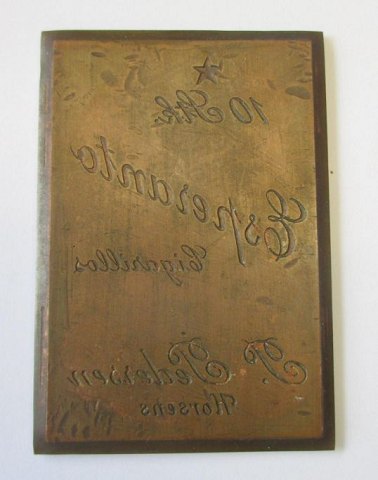 10 Stk.
Esperanto
Cigarillos
P. Pedersen
Horsens